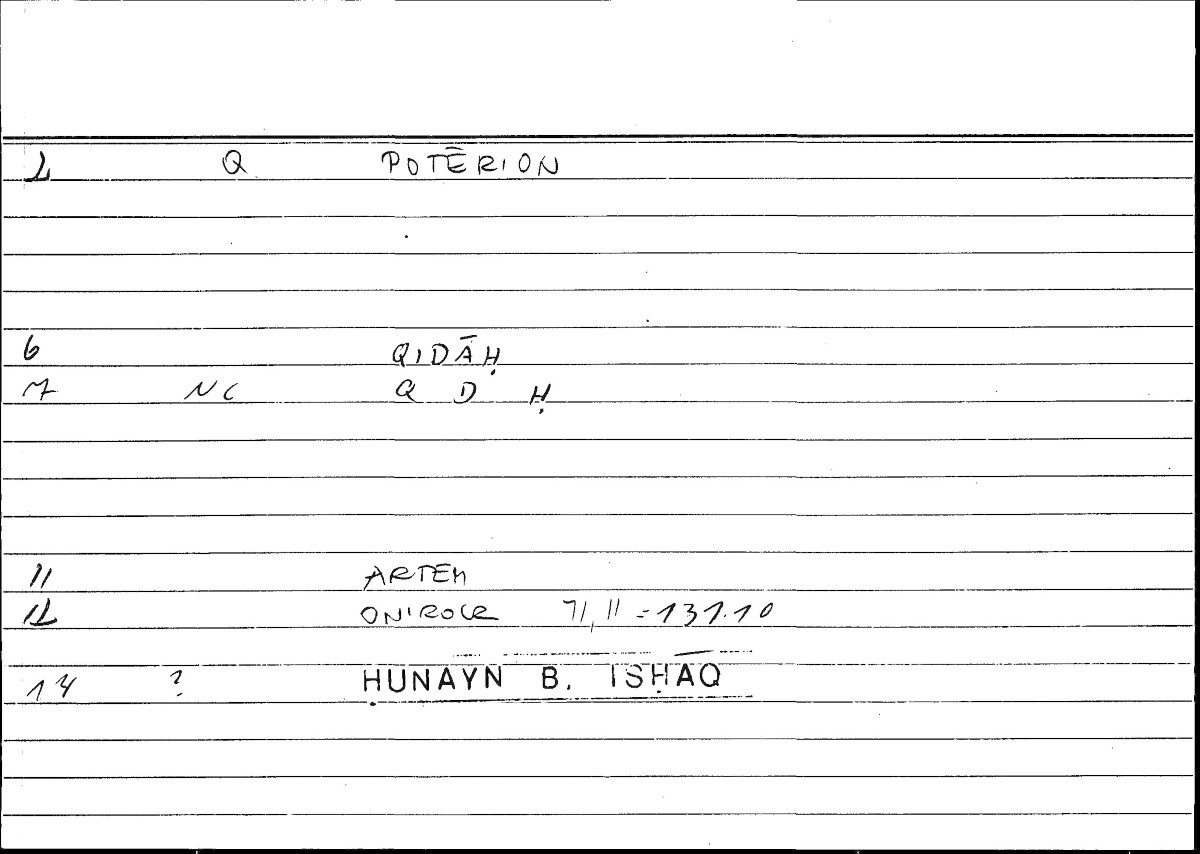 2 Q POTĒRION
6 QIDĀḤ
7 NC Q D Ḥ
11 ARTEM
12 ONIROCR 71,11 = 131.10
14 ? ḤUNAYN B. ISḤĀQ